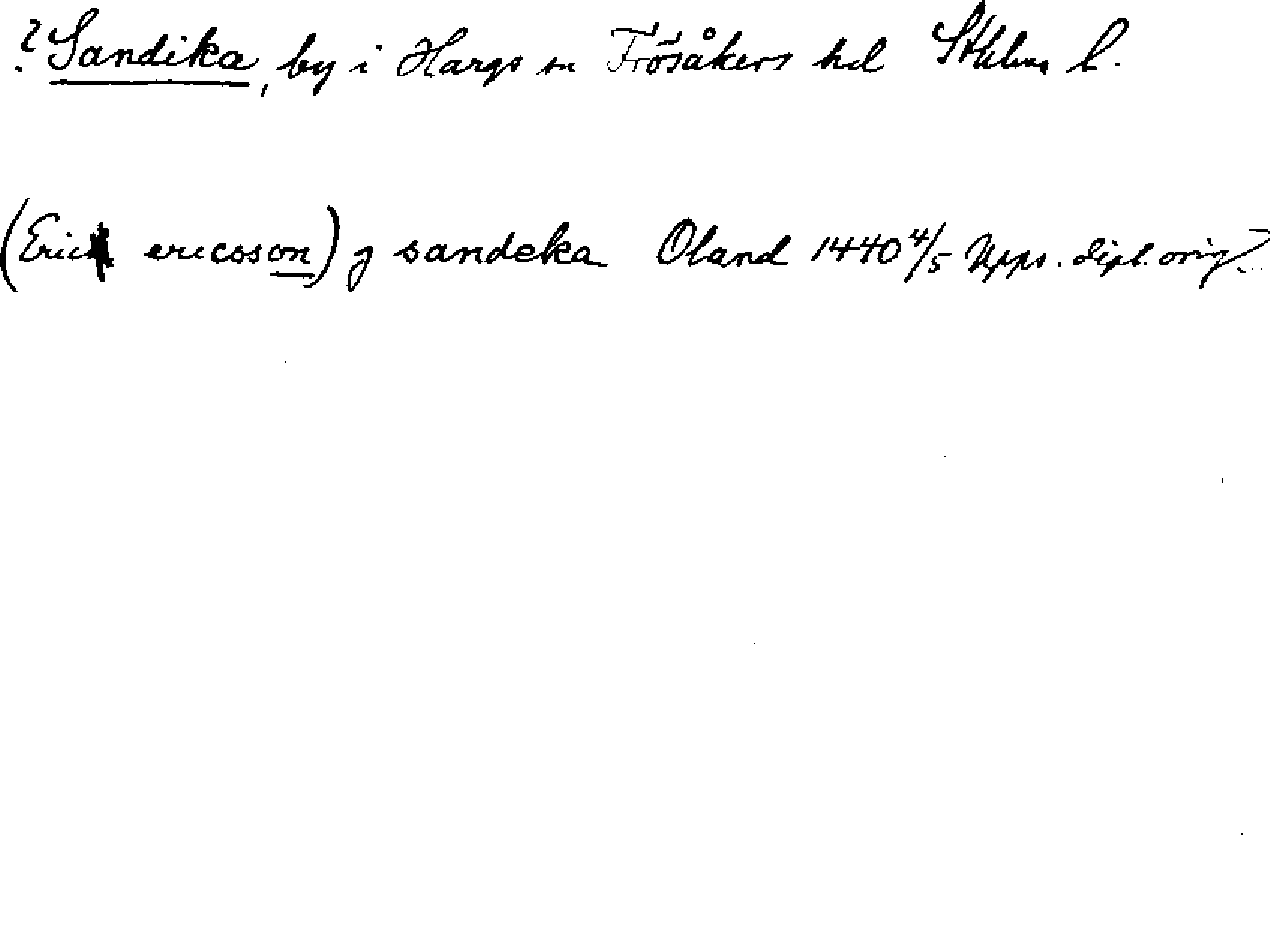 ? Sandika, by i Hargs sn Frösåkers hd Sthlms l.
(Eric ericsson) j sandeka Oland 1440 4/5 Upps. dipl. orig.